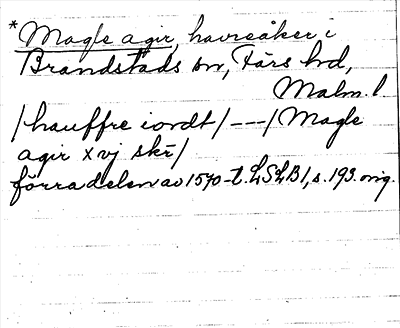 *Magle agir, havreåker i
Brandstads sn, Färs hd,
Malm. l.
/hauffre iordt/ --- / Magle
agir xvj skr/
förra delen av 1570-t. LSLB1, s. 193. orig.